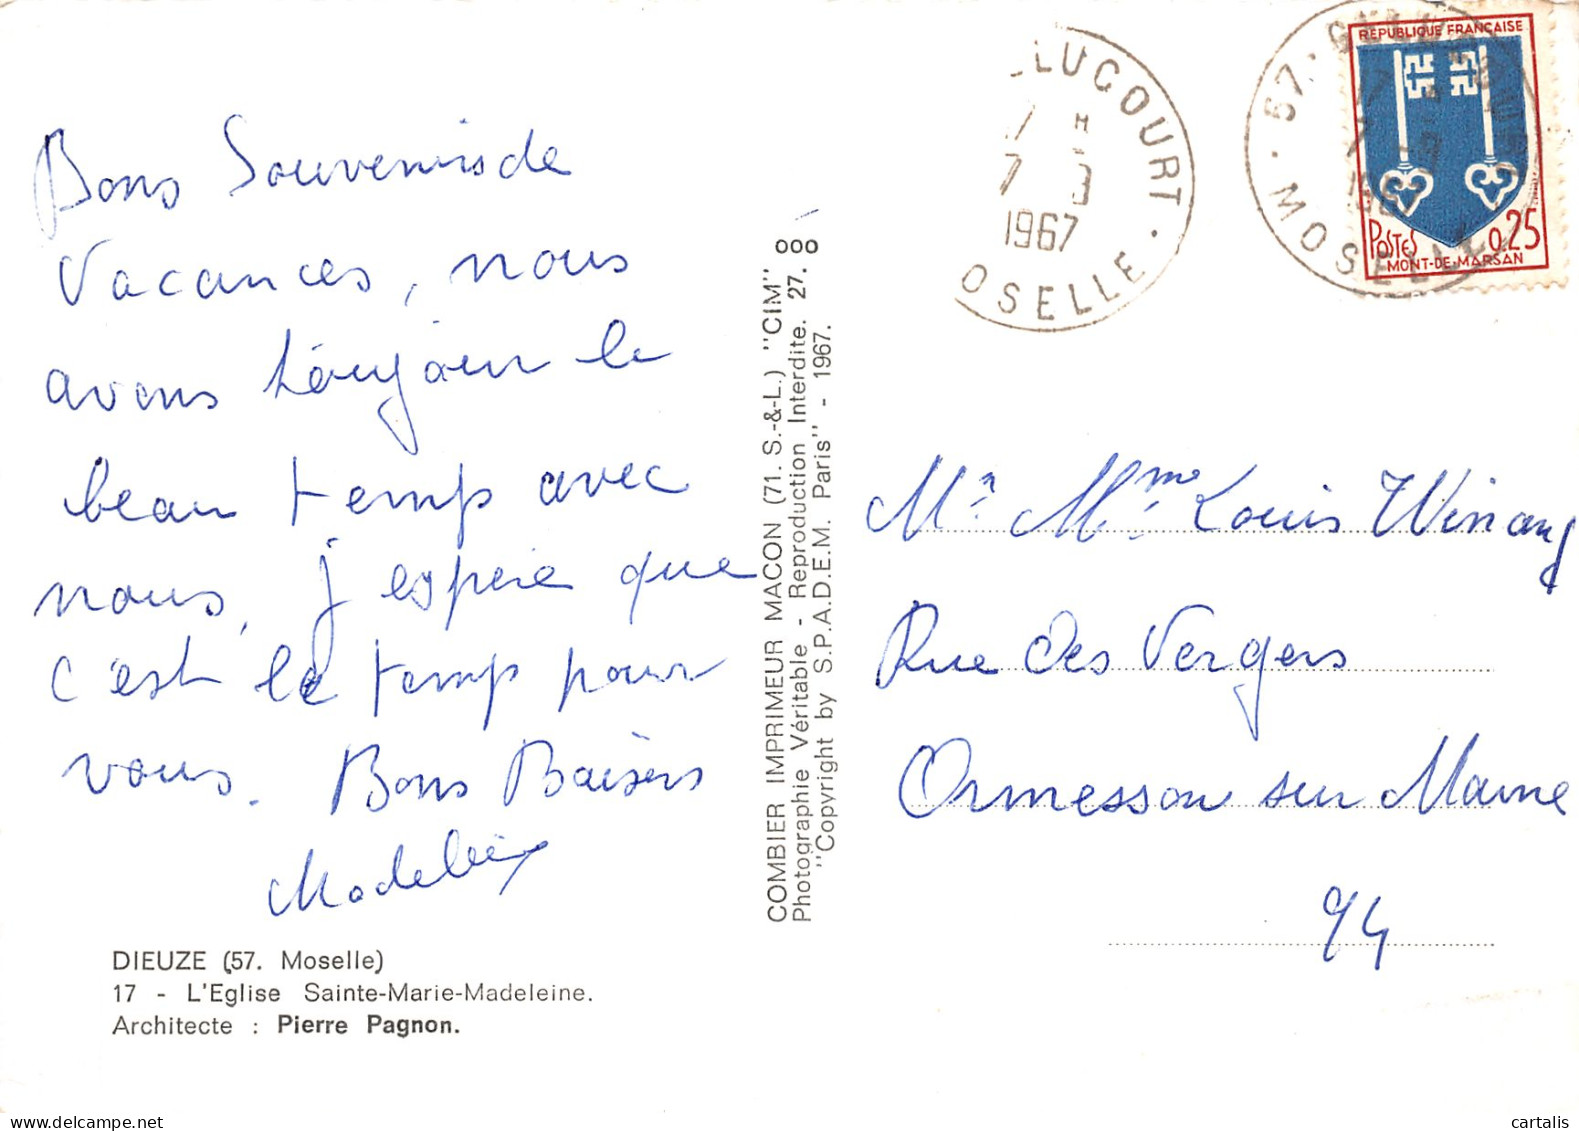 Bons Souvenirs de
Vacances, nous
avons toujours le
beau temps avec
nous, j'espère que
c'est le temps pour
vous. Bons Baisers
DIEUZE (57. Moselle)
17 - L'Eglise Sainte-Marie-Madeleine.
Architecte : Pierre Pagnon.
COMBIER IMPRIMEUR MACON (71. S.-&-L.) "CIM"
Photographie Véritable - Reproduction Interdite. 27.
"Copyright by S.P.A.D.E.M. Paris" - 1967.
LUCOURT
1967
OSELLE
57
MOSELLE
1967
REPUBLIQUE FRANÇAISE
POSTES 0,25
MONT-DE-MARSAN
Mr. Mme Louis
Rue des Vergers
Ormesson sur Marne
94
cartalis
www.delcampe.net